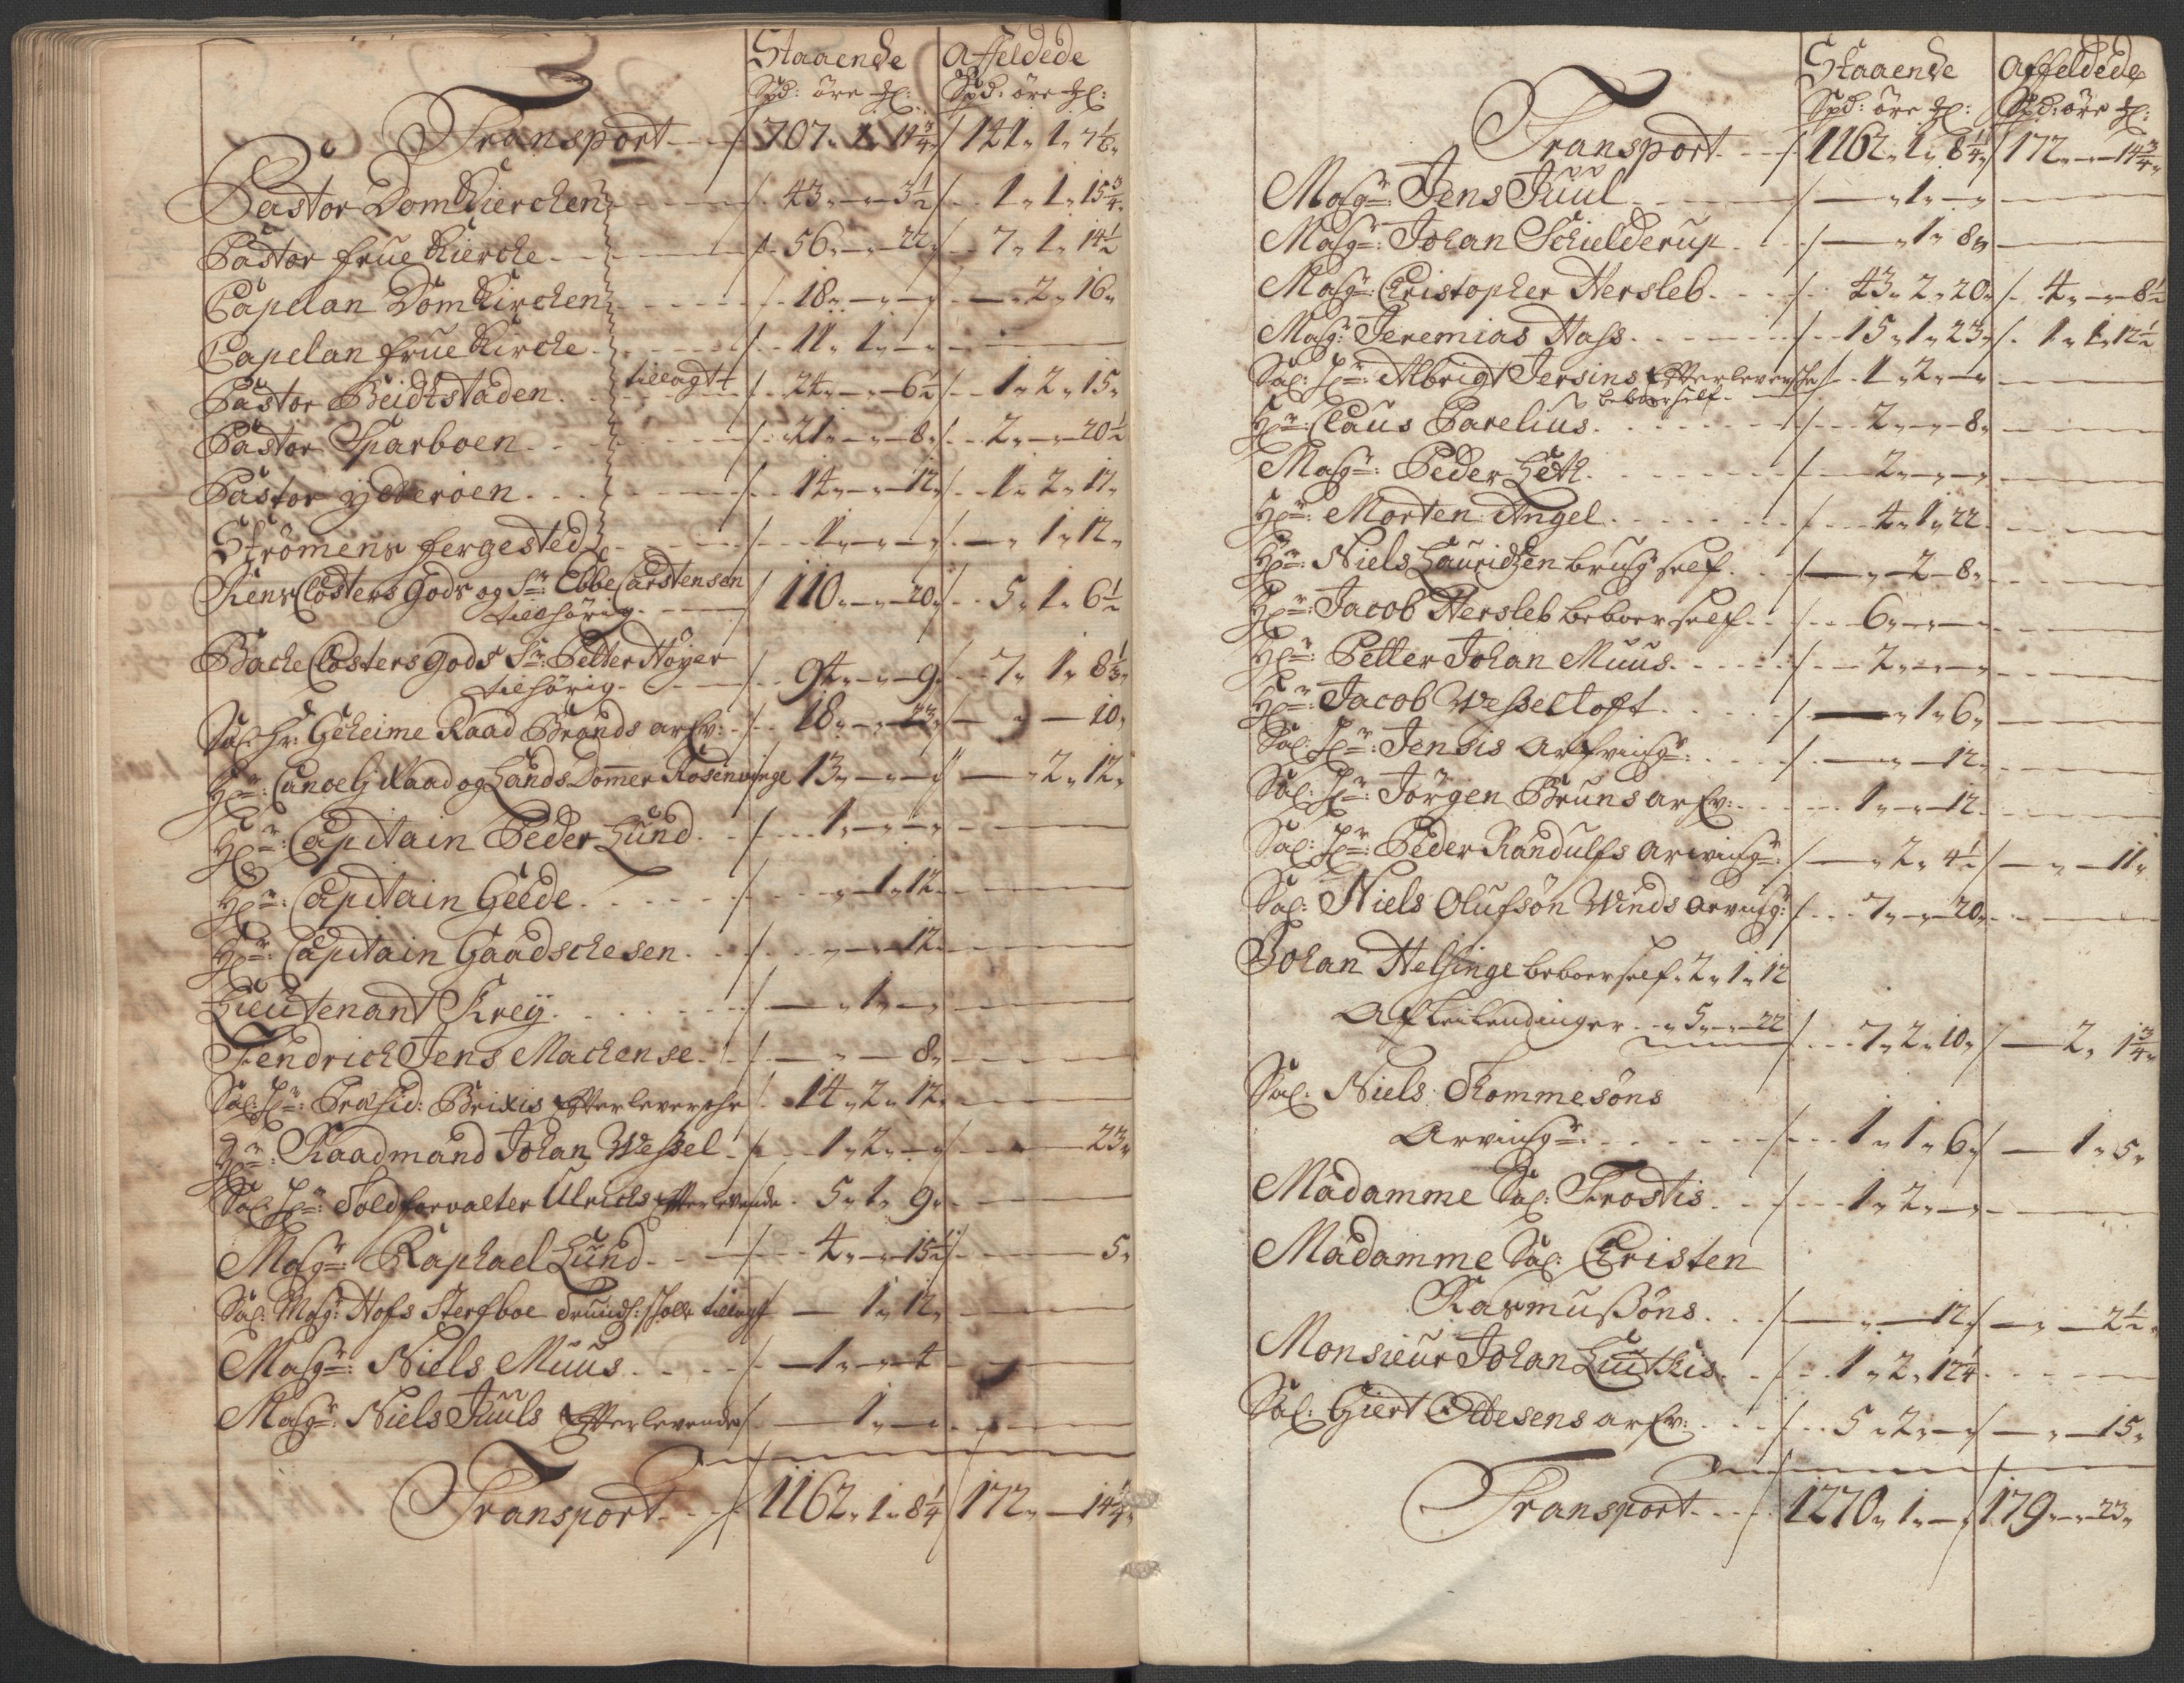 Staaende Affeldede
Spd: öre Xl: Spd: öre Xl:
Transport 707 1 14¾ 141 1 7½
Pastor DomKierchen 43 — 3½ 1 1 15¾
Pastor frue Kierche 56 — 22 7 1 14½
Capelan DomKirchen 18 — — — 2 16
Capelan frue Kirche 11 1 —
Pastor Beidtstaden tillagt 24 — 6½ 1 2 15
Pastor Sparboen 21 — 8 2 — 20½
Pastor Yderöen 14 — 12 1 2 17
Strömens fergested 1 — — — 1 12
Reins Closters Gods og Sr: Ebbe Carstensen
tilhörig 110 — 20 5 1 6½
Bache Closters Gods Sr: Petter Höyer
tilhörig 94 — 9 7 1 8⅓
Sal: Hr: Geheime Raad Brands arfv: 18 — 23 — — 10
Hr: Cancelj Raad og Lands Dommer Rosenvinge 13 — — — 2 12
Hr: Capitain Peder Lund 1 — —
Hr: Capitain Geede — 1 12
Hr: Capitain Gaadschesen — — 12
Lieutenant Kreÿ — 1 —
Fendrich Jens Machense — — 8
Sal: Hr: Præsid: Brixis Efterleversche 14 2 12
Hr: Raadmand Johan Wessel 1 2 — — — 23
Sal: Hr: Toldforvalter Ulrichs Efterlevende 5 1 9
Magr: Raphael Lund 4 — 15½ — — 5
Sal: Magr: Hofs Sterfboe tillagt — 1 12
Magr: Niels Muus — 1 — 4
Magr: Niels Juuls Efterlevende — 1 —
Transport 1162 1 8¼ 172 — 14¾
Staaende Affeldede
Spd: öre Xl: Spd: öre Xl:
Transport 1162 1 8¼ 172 — 14¾
Magr: Jens Juul — 1 —
Magr: Johan Schielderup — 1 8
Magr: Christopher Hersleb 43 2 20 4 — 8½
Magr: Jeremias Hass 15 1 23 1 1 12½
Sal: Hr: Albrigt Jersins Efterleversche 1 2 —
beboer self
Hr: Claus Parelius 2 — 8
Magr: Peder Leth 2 — —
Hr: Morten Angel 4 1 22
Hr: Niels Lauridzen brug self — 2 8
Hr: Jacob Hersleb beboer self 6 — —
Hr: Petter Johan Muus 2 — —
Hr: Jacob Wesseltoft — 1 6
Sal: Hr: Jensis Arfvingr: — — 12
Sal: Hr: Jörgen Bruns arfv: 1 — 12
Sal: Hr: Peder Randulfs arvingr: — 2 4½ — — 11
Sal: Niels Olufsön Winds Arving: 7 — 20
Johan Helsinge beboer self 2 1 12
Af Leilendinger 5 — 22 7 2 10 — 2 1¾
Sal: Niels Thommesöns
Arvingr: 1 1 6 — 1 5
Madamme Sal: Frostis 1 2 —
Madamme Sal: Cristen
Rasmussöns — — 12 — — 2½
Monsieur Johan Luthis 1 2 12¼
Sal: Giert Ottesens arfv: 5 2 — — — 15
Transport 1270 1 — 179 — 23